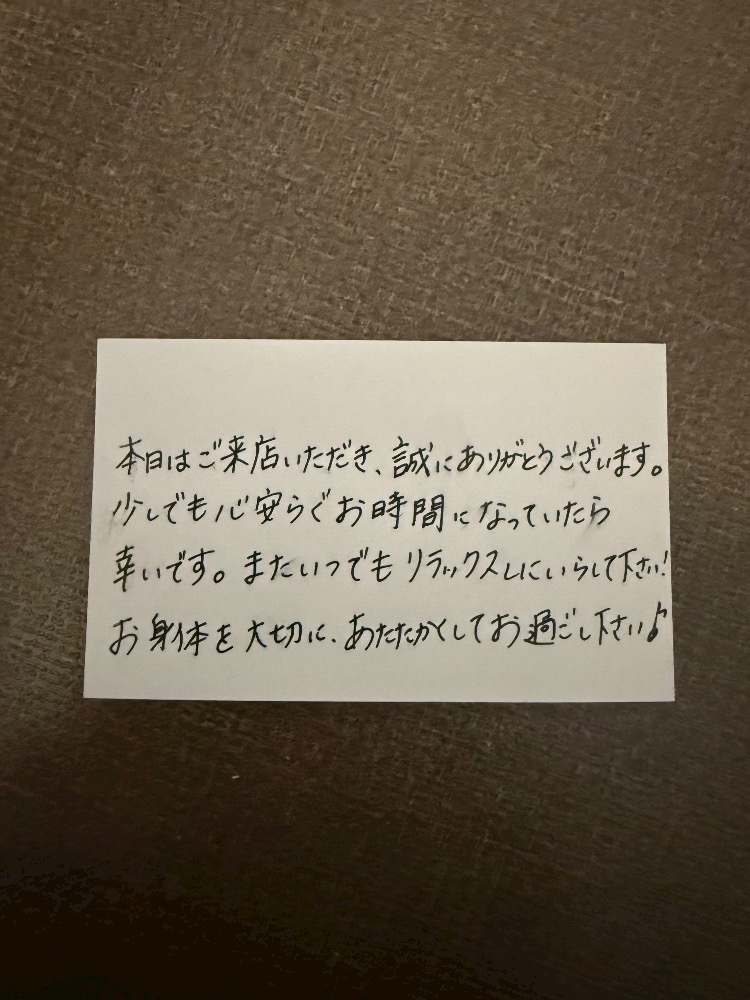 本日はご来店いただき、誠にありがとうございます。
少しでも心安らぐお時間になっていたら
幸いです。またいつでもリラックスしにいらして下さい!
お身体を大切に、あたたかくしてお過ごし下さい♪